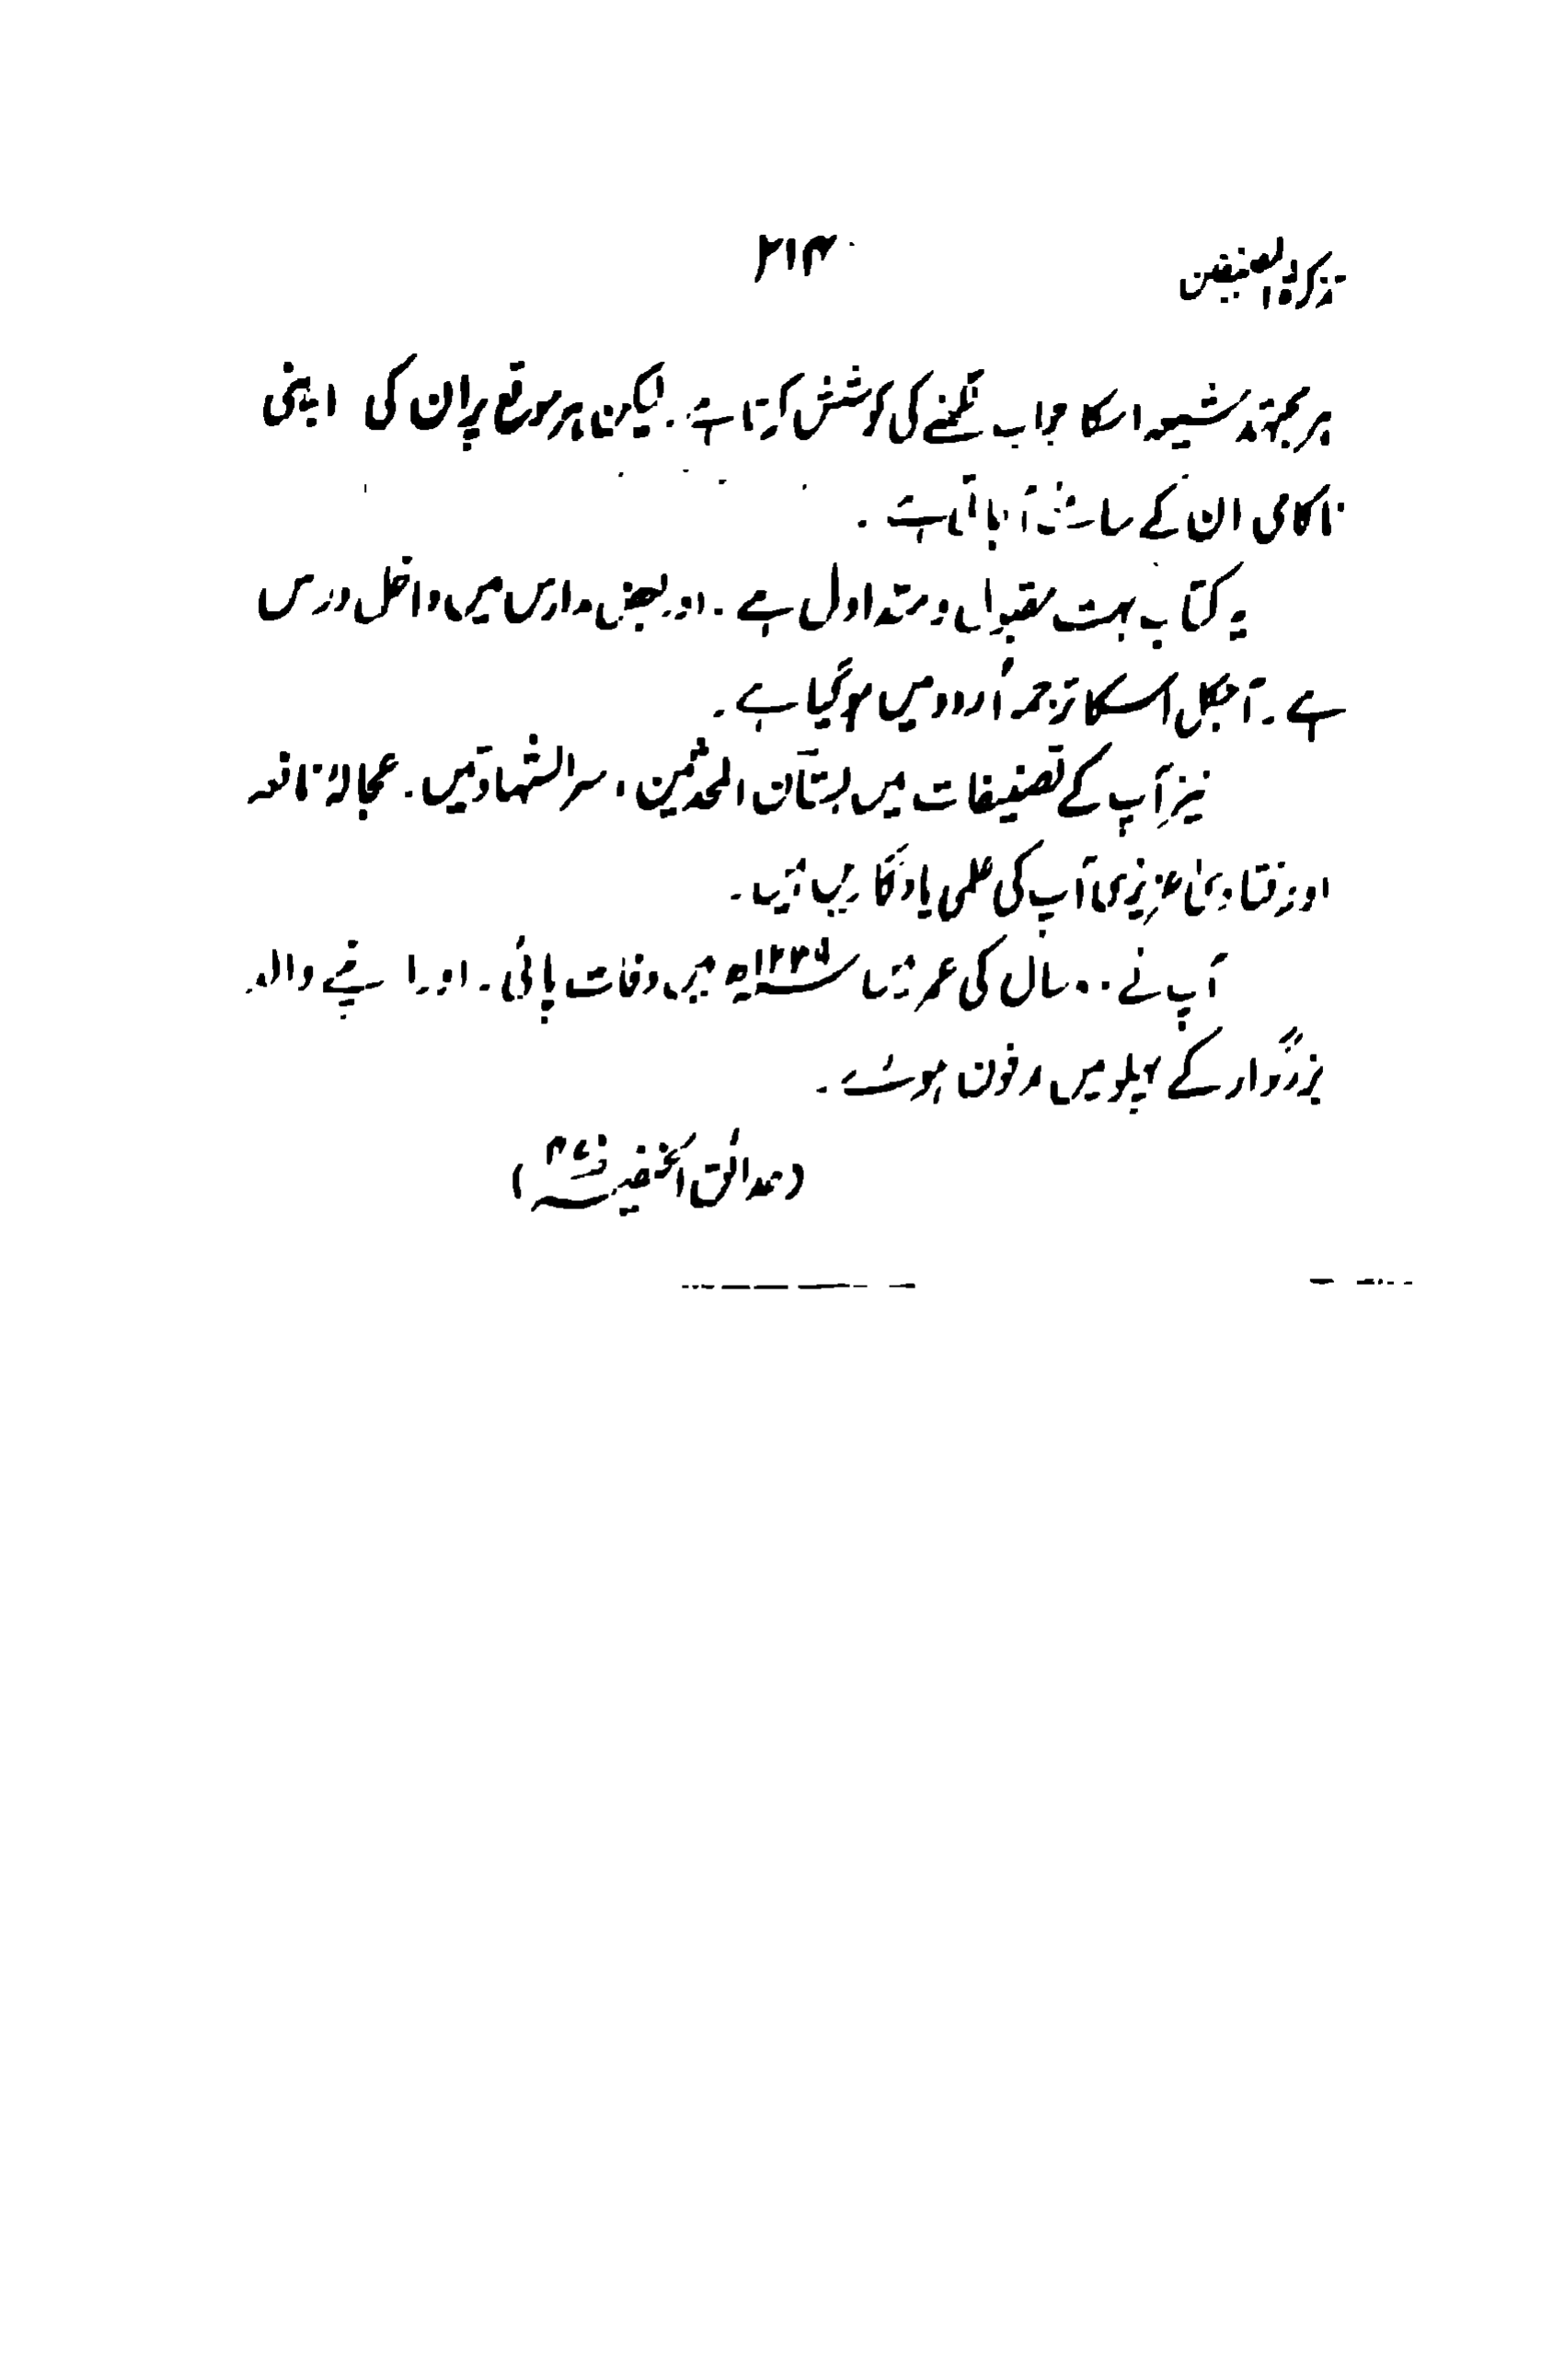 تذکرۃ المصنفین
۲۱۴
ہر مجتہد شیعہ اسکا جواب لکھنے کی کوشش کرتا ہے۔ لیکن ہر موقع پر ان کی اپنی
ناکامی ان کے سامنے آ جاتی ہے۔
یہ کتاب بہت مقبول و متداول ہے۔ اور بعض مدارس میں داخل درس
ہے۔ آجکل اسکا ترجمہ اُردو میں ہو گیا ہے۔
نیز آپ کے تصنیفات میں بستان المحدثین، سر الشہادتیں۔ عجالہ نافعہ
اور فتاویٰ عزیزی آپ کی علمی یادگاریں ہیں۔
آپ نے سال کی عمر میں میں وفات پائی۔ اور اپنے والد
بزرگوار کے پہلو میں مدفون ہوئے۔
(حدائق الحنفیہ)